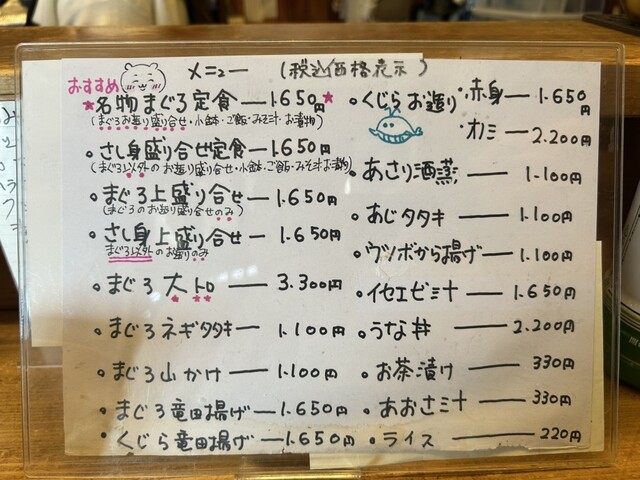 メニュー (税込価格表示)
おすすめ
★名物まぐろ定食―1.650円★
(まぐろお造り盛り合せ・小鉢・ご飯・みそ汁お漬物)
。さし身盛り合せ定食―1.650円
(まぐろ以外のお造り盛り合せ・小鉢・ご飯・みそ汁お漬物)
。まぐろ上盛り合せ―1.650円
(まぐろのお造り盛り合せのみ)
。さし身上盛り合せ―1.650円
まぐろ以外のお造りのみ
。まぐろ大トロ―3.300円
。まぐろネギタタキ―1.100円
。まぐろ山かけ―1.100円
。まぐろ竜田揚げ―1.650円
。くじら竜田揚げ―1.650円
。くじらお造り・赤身―1.650円
・オノミ―2.200円
。あさり酒蒸―1.100円
。あじタタキ―1.100円
。ウツボから揚げ―1.100円
。イセエビ汁―1.650円
。うな丼―2.200円
。お茶漬け―330円
。あおさ汁―330円
。ライス―220円